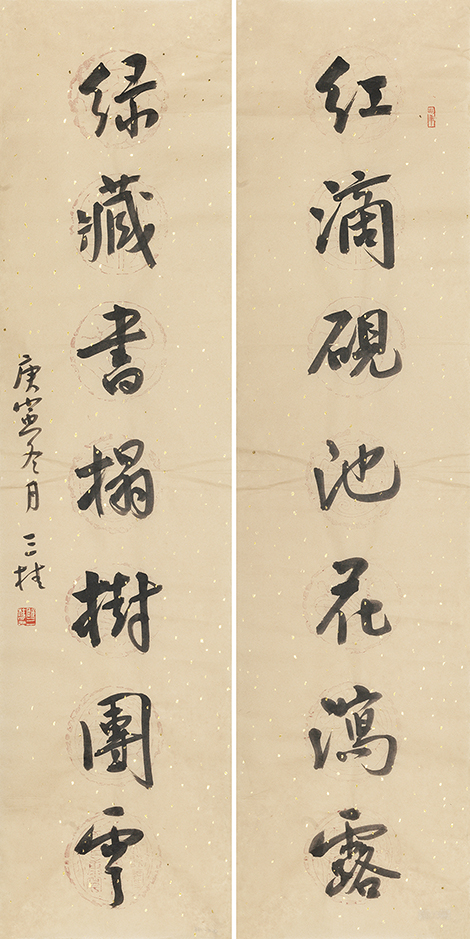 紅滴硯池花瀉露
綠藏書榻樹團雲
庚寅冬月 三桂